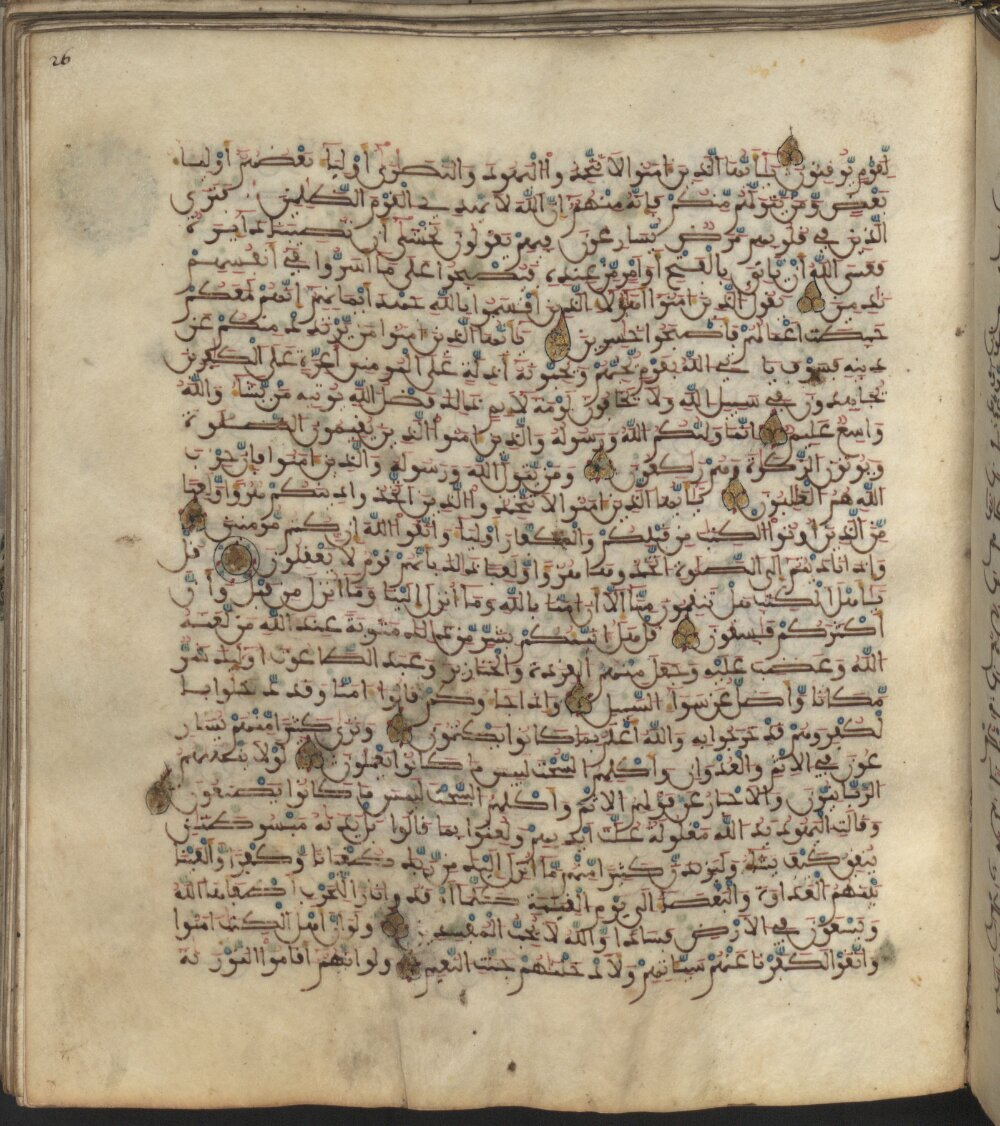 لقوم يوقنون يأيها الذين امنوا لا تتخذوا اليهود والنصرى أولياء بعضهم أولياء
بعض ومن يتولهم منكم فإنه منهم إن الله لا يهدي القوم الظلمين فترى
الذين في قلوبهم مرض يسارعون فيهم يقولون نخشى أن تصيبنا دائرة
فعسى الله أن يأتي بالفتح أو أمر من عنده فيصبحوا على ما أسروا في أنفسهم
ندمين يقول الذين امنوا أهؤلاء الذين أقسموا بالله جهد أيمانهم إنهم لمعكم
حبطت أعمالهم فأصبحوا خسرين يأيها الذين امنوا من يرتدد منكم عن
دينه فسوف يأتي الله بقوم يحبهم ويحبونه أذلة على المومنين أعزة على الكفرين
يجاهدون في سبيل الله ولا يخافون لومة لائم ذلك فضل الله يوتيه من يشاء والله
واسع عليم إنما وليكم الله ورسوله والذين امنوا الذين يقيمون الصلوة
ويوتون الزكوة وهم ركعون ومن يتول الله ورسوله والذين امنوا فإن حزب
الله هم الغلبون يأيها الذين امنوا لا تتخذوا الذين اتخذوا دينكم هزؤا ولعبا
من الذين أوتوا الكتب من قبلكم والكفار أولياء واتقوا الله إن كنتم مومنين
وإذا ناديتم إلى الصلوة اتخذوها هزؤا ولعبا ذلك بأنهم قوم لا يعقلون قل
يأهل الكتب هل تنقمون منا إلا أن امنا بالله وما أنزل إلينا وما أنزل من قبل وأن
أكثركم فسقون قل هل أنبئكم بشر من ذلك مثوبة عند الله من لعنه
الله وغضب عليه وجعل منهم القردة والخنازير وعبد الطاغوت أولئك شر
مكانا وأضل عن سواء السبيل وإذا جاءوكم قالوا امنا وقد دخلوا با
لكفر وهم قد خرجوا به والله أعلم بما كانوا يكتمون وترى كثيرا منهم يسار
عون في الإثم والعدوان وأكلهم السحت لبيس ما كانوا يعملون لولا ينهيهم
الربانيون والأحبار عن قولهم الإثم وأكلهم السحت لبيس ما كانوا يصنعون
وقالت اليهود يد الله مغلولة غلت أيديهم ولعنوا بما قالوا بل يداه مبسوطتان
ينفق كيف يشاء وليزيدن كثيرا منهم ما أنزل إليك من ربك طغيانا وكفرا وألقينا
بينهم العداوة والبغضاء إلى يوم القيمة كلما أوقدوا نارا للحرب أطفأها الله
ويسعون في الأرض فسادا والله لا يحب المفسدين ولو أن أهل الكتب امنوا
واتقوا لكفرنا عنهم سيئاتهم ولأدخلناهم جنت النعيم ولو أنهم أقاموا التورية
26